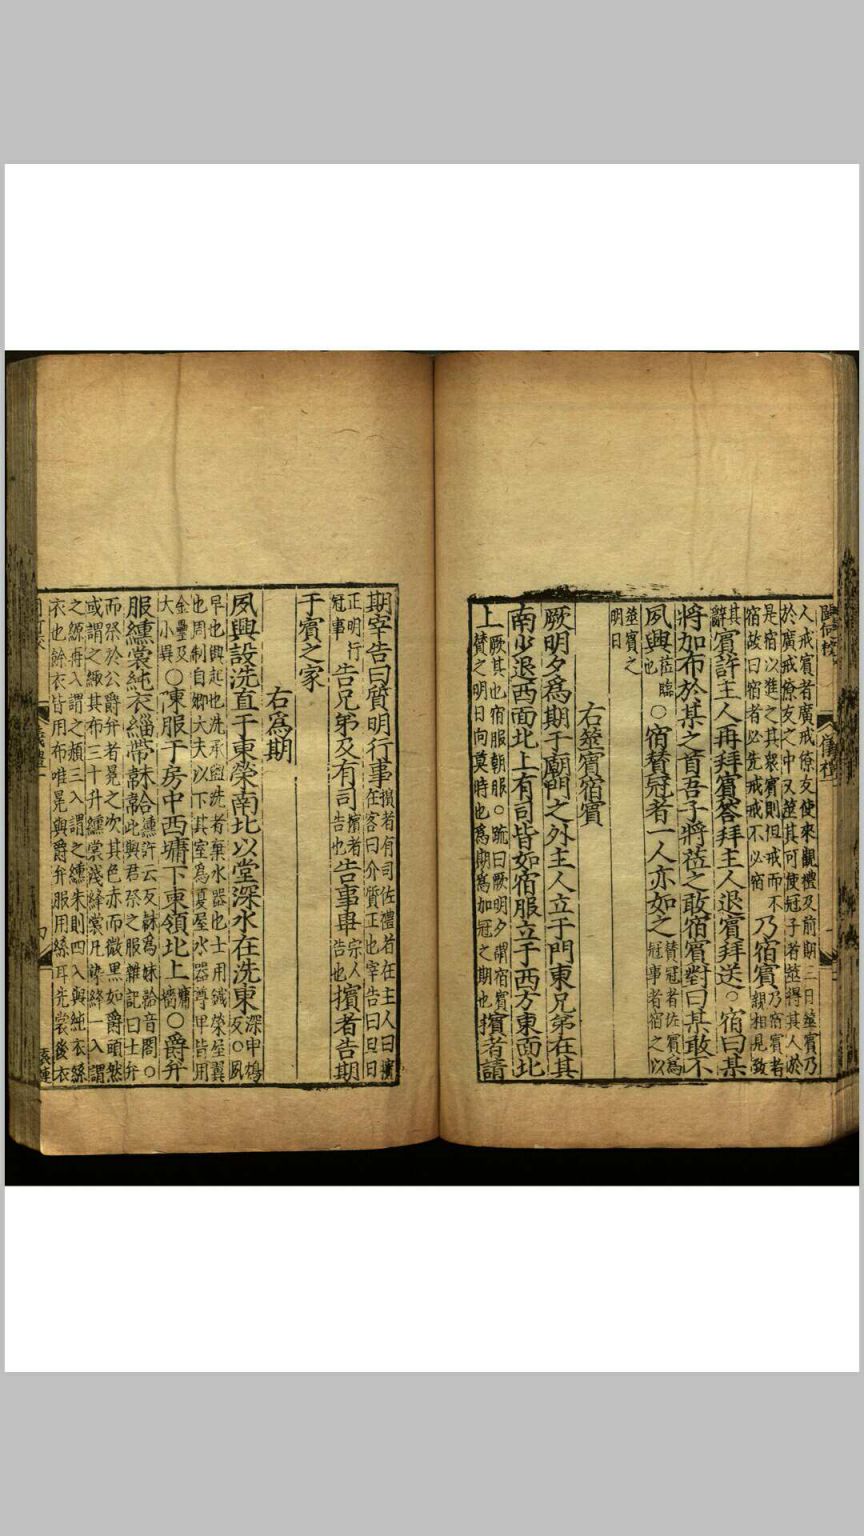 人戒賓者廣戒僚友使來觀禮及前期三日筮賓乃
於廣戒僚友之中又筮其可使冠子者筮得其人於
是宿以進之其衆賓則但戒而不
宿故曰宿者必先戒戒不必宿
乃宿賓
乃宿賓者
親相見致
其
辭
賓許主人再拜賓答拜主人退賓拜送○宿曰某
將加布於某之首吾子將莅之敢宿賓對曰某敢不
夙興
莅臨
也
○宿賛冠者一人亦如之
賛冠者佐賓爲
冠事者宿之以
筮賓之
明日
右筮賓宿賓
厥明夕爲期于廟門之外主人立于門東兄弟在其
南少退西面北上有司皆如宿服立于西方東面北
上
厥其也宿服朝服○疏曰厥明夕謂宿賓
賛之明日向莫時也爲期爲加冠之期也
擯者請
期宰告曰質明行事
擯者有司佐禮者在主人曰擯
在客曰介質正也宰告曰旦日
正明行
冠事
告兄弟及有司
擯者
告也
告事畢
宗人
告也
擯者告期
于賓之家
右爲期
夙興設洗直于東榮南北以堂深水在洗東
深申鴆
反○夙
早也興起也洗承盥洗者棄水器也士用鐵榮屋翼
也周制自卿大夫以下其室爲夏屋水器尊卑皆用
金罍及
大小異
○陳服于房中西墉下東領北上
墉
牆
○爵弁
服纁裳純衣緇帶韎韐
纁許云反韎爲妹韐音閤○
此與君祭之服雜記曰士弁
而祭於公爵弁者冕之次其色赤而微黑如爵頭然
或謂之緅其布三十升纁裳淺絳裳凡染絳一入謂
之縓再入謂之赬三入謂之纁朱則四入與純衣絲
衣也餘衣皆用布唯冕與爵弁服用絲耳先裳後衣